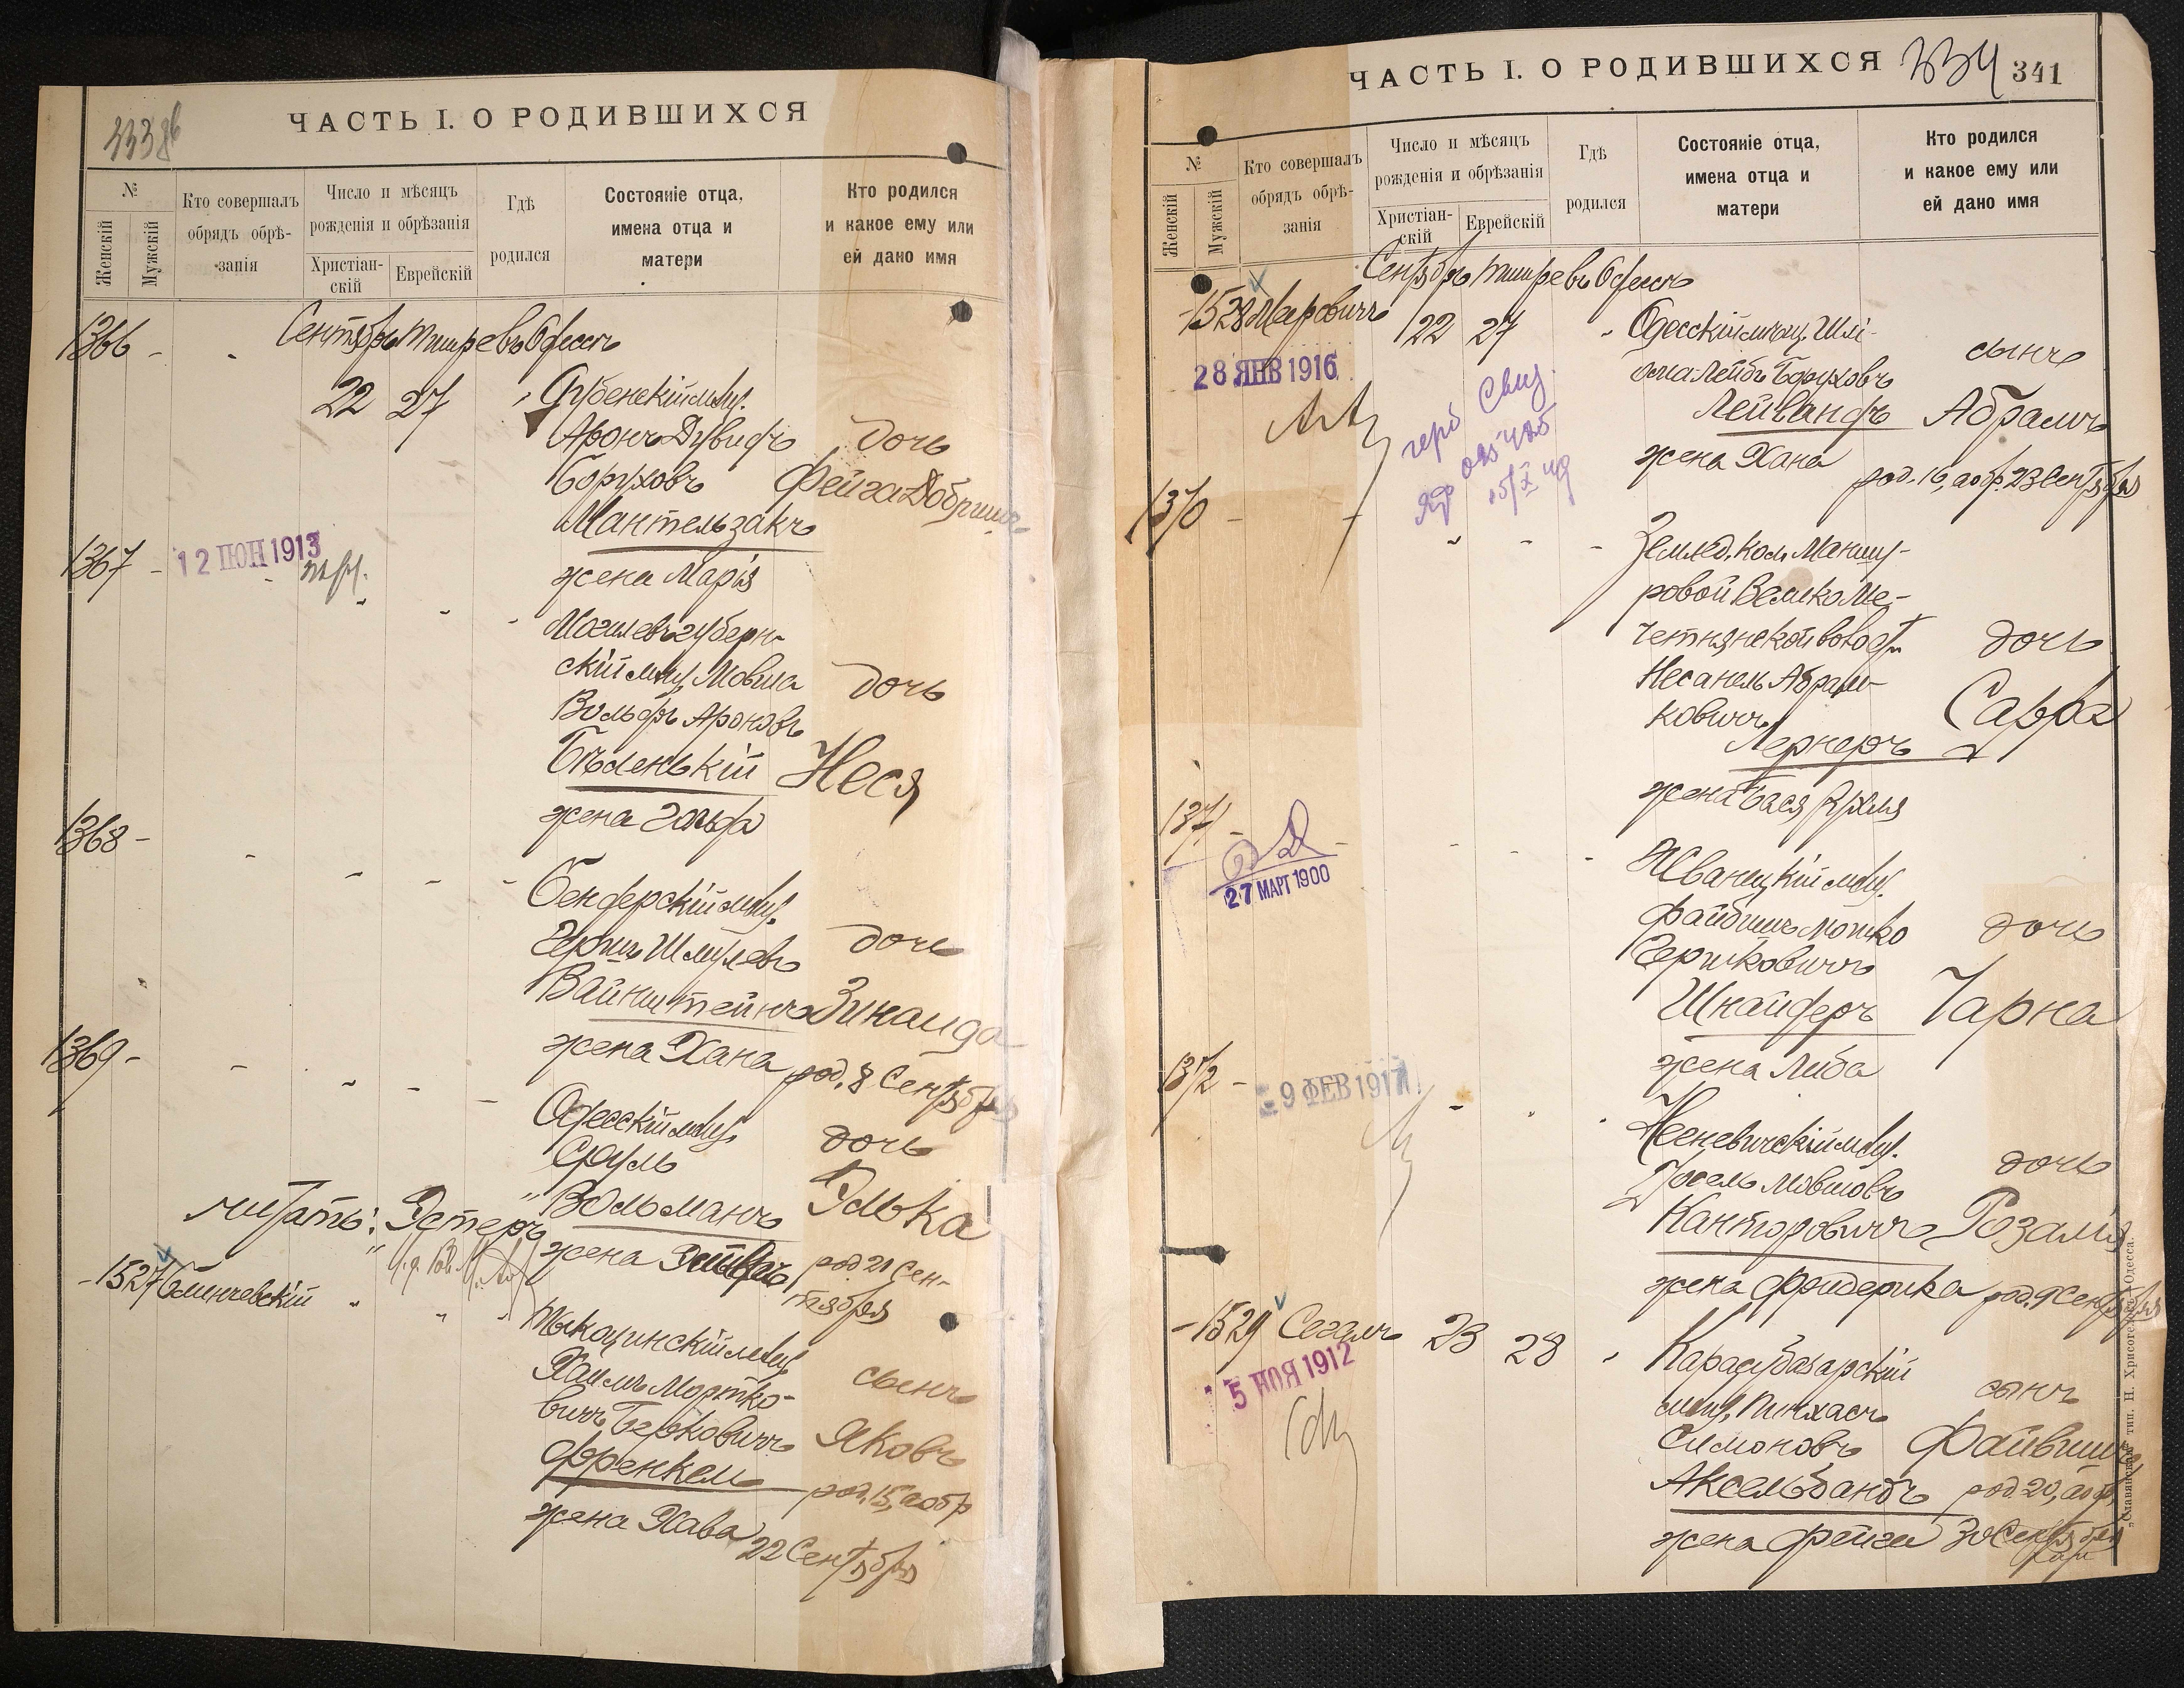 333 об
ЧАСТЬ I. О РОДИВШИХСЯ
№
Женскій
Мужскій
Кто совершалъ
обрядъ обрѣ-
занія
Число и мѣсяцъ
рожденія и обрѣзанія
Христіан-
скій
Еврейскій
Гдѣ
родился
Состояніе отца,
имена отца и
матери
Кто родился
и какое ему или
ей дано имя
Сентябрь Тишре въ Одессѣ
1366 -
22 27
мѣщ.
Аронъ Дувидъ
Боруховъ
Мантельзакъ
жена Марія
дочь
Фейга Добриш
1367 -
12 ІЮН 1913
Могилевъ губерн-
скій мѣщ. Мовша
Вольфъ Ароновъ
Бѣленькій
жена Гольда
дочь
Неся
1368 -
Бендерскій мѣщ.
Герш Шмулевъ
Вайнштейнъ
жена Хана
дочь
Зинаида
род. 8 Сентября
1369 -
Одесскій мѣщ.
Сруль
Вольманъ
жена
дочь
Элька
род 21 Сен-
тября
читать: "Эстеръ"
- 1527 Олинчевскій
Тыкоцинскій мѣщ.
Хаимъ Мортко-
вичъ Берковичъ
Френкель
жена Хава
сынъ
Яковъ
род. 15, а обр
22 Сентября
ЧАСТЬ I. О РОДИВШИХСЯ 334 341
№
Женскій
Мужскій
Кто совершалъ
обрядъ обрѣ-
занія
Число и мѣсяцъ
рожденія и обрѣзанія
Христіан-
скій
Еврейскій
Гдѣ
родился
Состояніе отца,
имена отца и
матери
Кто родился
и какое ему или
ей дано имя
Сентябрь Тишре въ Одессѣ
- 1528 Маровичъ
22 27
28 ЯНВ 1916
Одесскій мѣщ. Шлі-
ома Лейбъ Боруховъ
Лейвандъ
жена Хана
сынъ
Абрамъ
род. 16, а обр. 23 Сентября
1370 -
Землед. кол. Маншу-
ровой Велико Ме-
четнянской волости
Несанель Абрам-
ковичъ
Лернеръ
жена Бася Рухля
дочь
Сарра
1371 -
27 МАРТ 1900
Жванецкій мѣщ.
Файбишъ Мошко
Гершковичъ
Шнайдеръ
жена Либа
дочь
Чарна
1372 -
9 ФЕВ 1917
мѣщ.
Мовшовъ
Канторовичъ
жена Фридерика
дочь
Розалія
род. 9 Сентября
- 1529 Сегалъ 23 28
5 НОЯ 1912
Карасубазарскій
мѣщ. Пинхасъ
Симоновъ
Аксельбандъ
жена Фейга
сынъ
Файвишъ
род. 20, а обр
30 Сентября
„Славянская" тип. Н. Хрисогелосъ, Одесса.